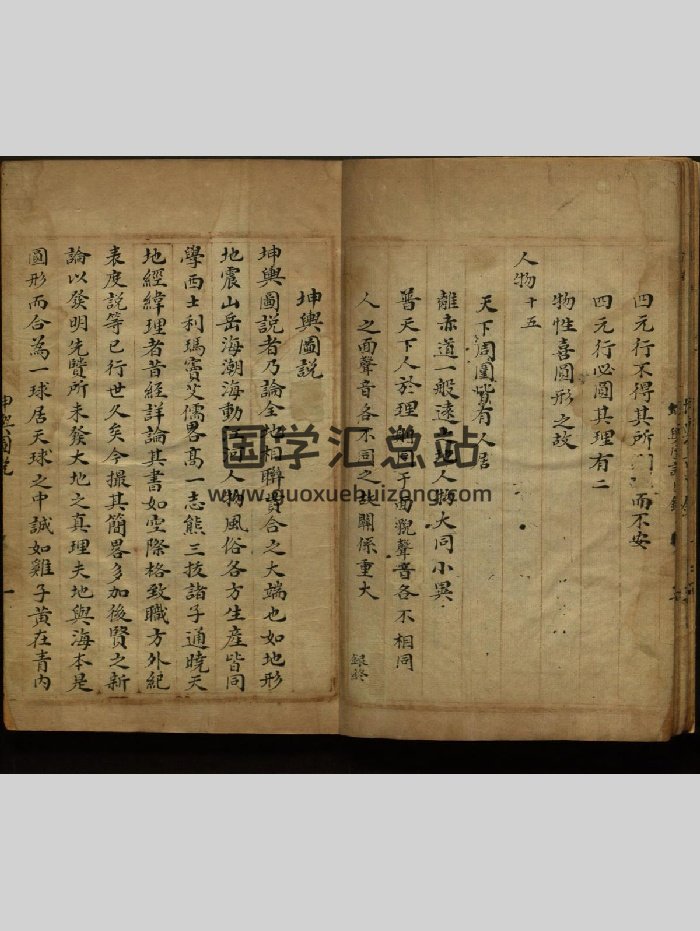 四元行不得其所而不安
四元行必圓其理有二
物性喜圓形之故
人物十五
天下周圍皆有人居
離赤道一般遠之地人物大同小異
普天下人於理則同于面貌聲音各不相同
人之面聲音各不同之故關係重大
錄終
坤輿圖說
坤輿圖說者乃論全地相聯貫合之大端也如地形
地震山岳海潮海動江河人物風俗各方生產皆同
學西士利瑪竇艾儒畧高一志熊三拔諸子通曉天
地經緯理者昔經詳論其書如空際格致職方外紀
表度說等已行世久矣今撮其簡畧多加後賢之新
論以發明先賢所未發大地之真理夫地與海本是
圓形而合為一球居天球之中誠如雞子黃在青內
坤輿圖說
一
国学汇总站
www.guoxuehuizong.com